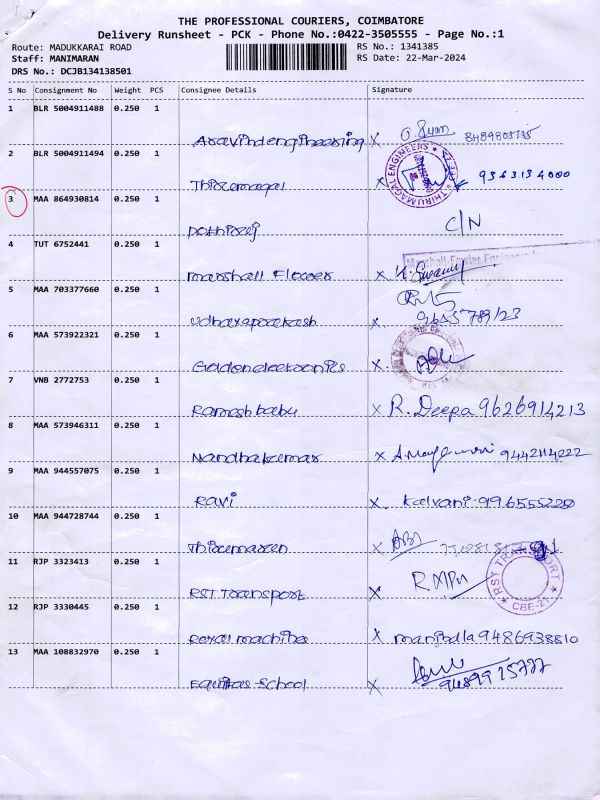 THE PROFESSIONAL COURIERS, COIMBATORE
Delivery Runsheet - PCK - Phone No.:0422-3505555 - Page No.:1
Route: MADUKKARAI ROAD
RS No.: 1341385
Staff: MANIMARAN
RS Date: 22-Mar-2024
DRS No.: DCJB134138501
S No Consignment No Weight PCS Consignee Details Signature
1 BLR 5004911488 0.250 1
Aravind engineering x
2 BLR 5004911494 0.250 1
Thirumagal x 9363134000
THIRUMAGAL ENGINEERS
3 MAA 864930814 0.250 1
C/N
4 TUT 6752441 0.250 1
Marshall Flower x K. Swamy
5 MAA 703377660 0.250 1
Udhayaprakash x 9655789123
6 MAA 573922321 0.250 1
x
7 VNB 2772753 0.250 1
Ramesh babu x R. Deepa 9626914213
8 MAA 573946311 0.250 1
Nandhakumar x 9442114222
9 MAA 944557075 0.250 1
Ravi x Kalvani 996555220
10 MAA 944728744 0.250 1
Thirumaran x
11 RJP 3323413 0.250 1
RST Transport x
RST TRANSPORT
CBE-21
12 RJP 3330445 0.250 1
Royal machine x 9486938810
13 MAA 108832970 0.250 1
Equitas School x